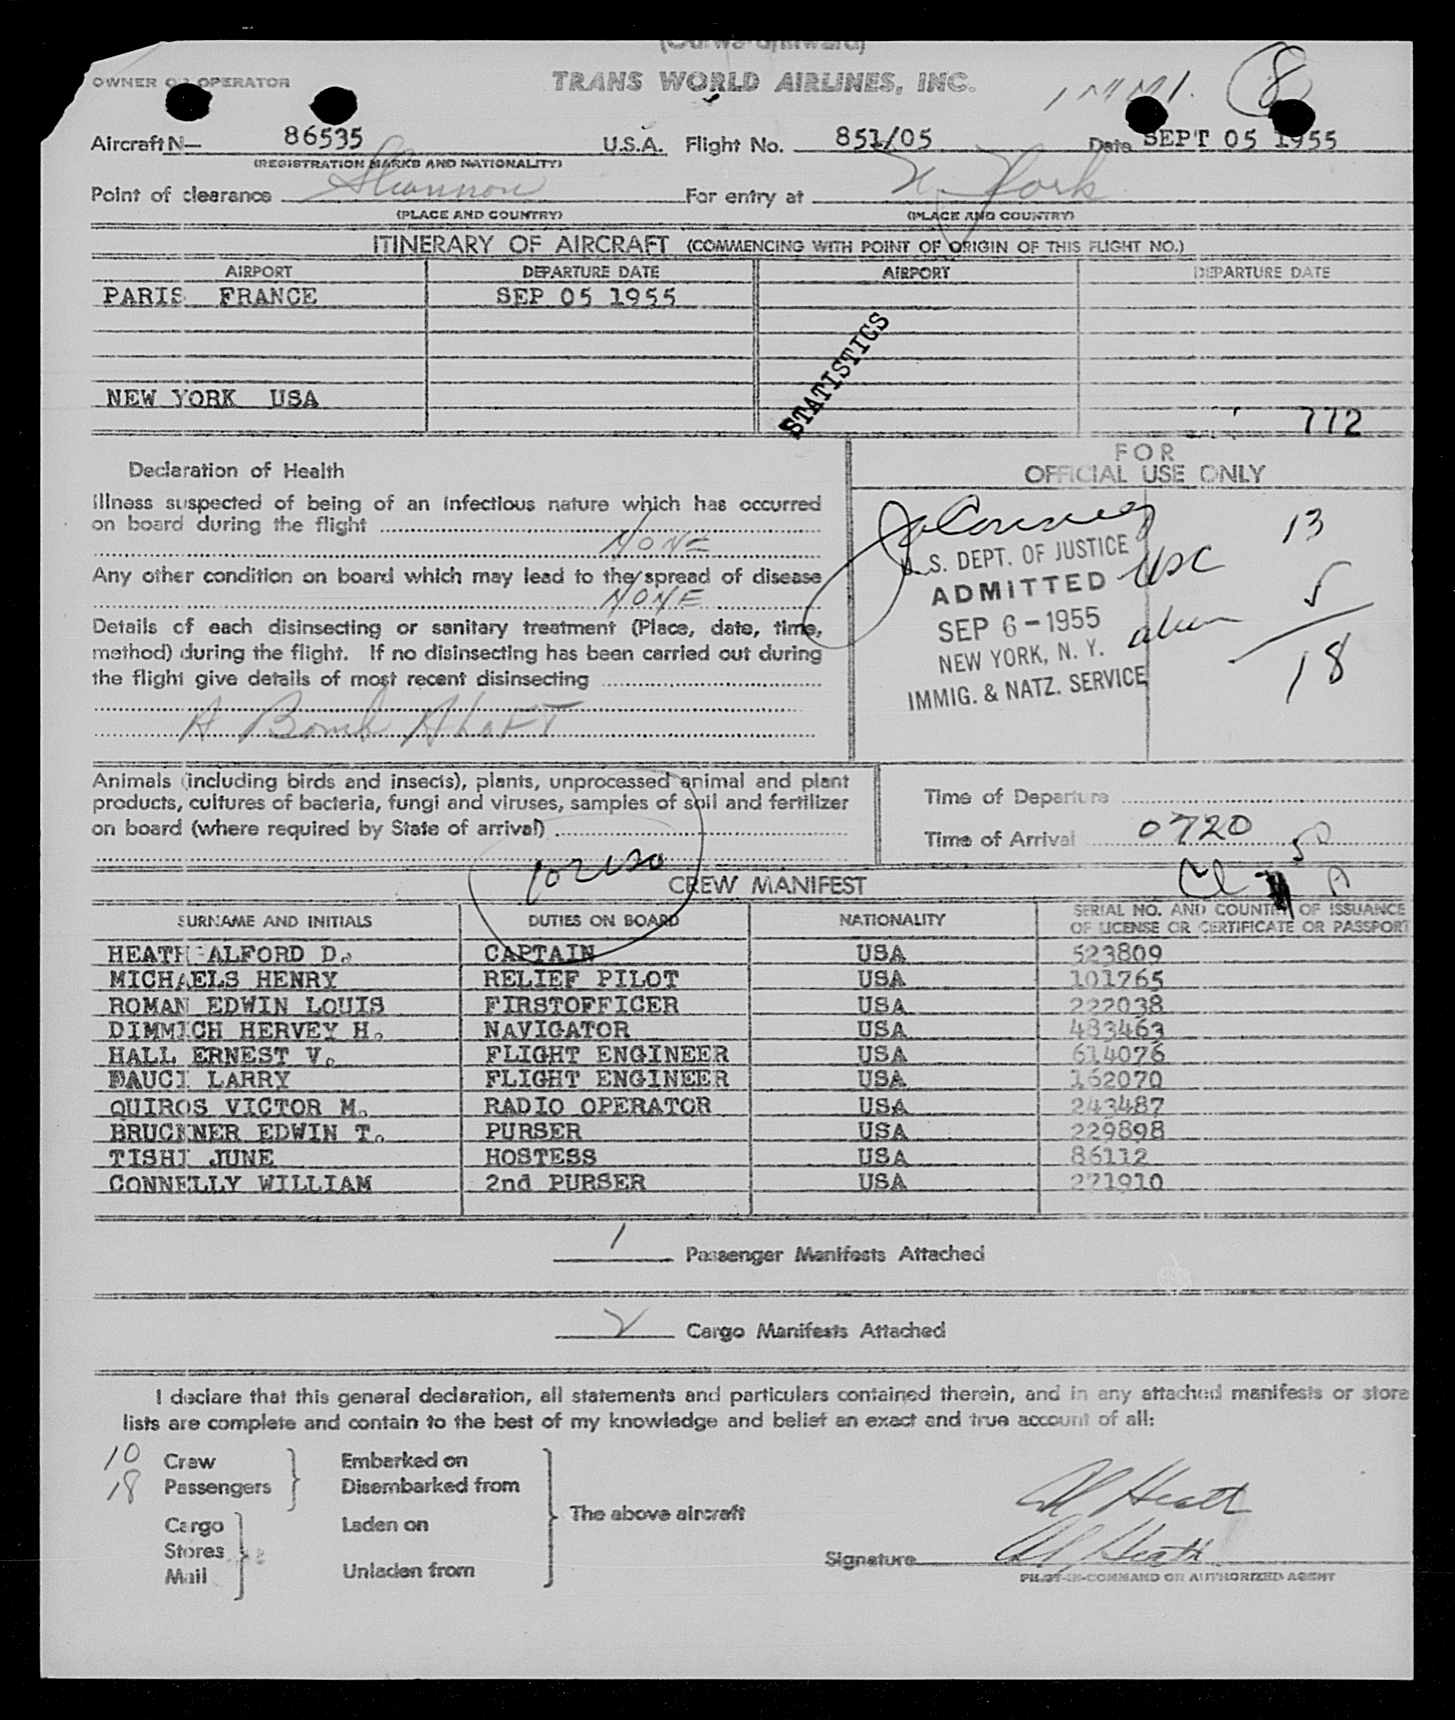 (Outward/Inward)
OWNER OR OPERATOR TRANS WORLD AIRLINES, INC. IMMI. 8
Aircraft N— 86535 U.S.A. Flight No. 851/05 Date SEPT 05 1955
(REGISTRATION MARKS AND NATIONALITY)
Point of clearance Shannon For entry at N York
(PLACE AND COUNTRY) (PLACE AND COUNTRY)
ITINERARY OF AIRCRAFT (COMMENCING WITH POINT OF ORIGIN OF THIS FLIGHT NO.)
AIRPORT DEPARTURE DATE AIRPORT DEPARTURE DATE
PARIS FRANCE SEP 05 1955
STATISTICS
NEW YORK USA
772
Declaration of Health
FOR
OFFICIAL USE ONLY
Illness suspected of being of an infectious nature which has occurred
on board during the flight
NONE
Any other condition on board which may lead to the spread of disease
NONE
Details of each disinsecting or sanitary treatment (Place, date, time,
method) during the flight. If no disinsecting has been carried out during
the flight give details of most recent disinsecting
A Bomb ALOFT
U.S. DEPT. OF JUSTICE
ADMITTED
SEP 6-1955
NEW YORK, N. Y.
IMMIG. & NATZ. SERVICE
USC 13
alien 5
18
Animals (including birds and insects), plants, unprocessed animal and plant
products, cultures of bacteria, fungi and viruses, samples of soil and fertilizer
on board (where required by State of arrival)
Time of Departure
Time of Arrival 0720
CREW MANIFEST
SURNAME AND INITIALS DUTIES ON BOARD NATIONALITY SERIAL NO. AND COUNTRY OF ISSUANCE
OF LICENSE OR CERTIFICATE OR PASSPORT
HEATH ALFORD D. CAPTAIN USA 523809
MICHAELS HENRY RELIEF PILOT USA 101765
ROMAN EDWIN LOUIS FIRSTOFFICER USA 222038
DIMMICH HERVEY H. NAVIGATOR USA 483463
HALL ERNEST V. FLIGHT ENGINEER USA 614076
FAUCI LARRY FLIGHT ENGINEER USA 162070
QUIROS VICTOR M. RADIO OPERATOR USA 243487
BRUCKNER EDWIN T. PURSER USA 229898
TISHI JUNE HOSTESS USA 86112
CONNELLY WILLIAM 2nd PURSER USA 271910
1 Passenger Manifests Attached
2 Cargo Manifests Attached
I declare that this general declaration, all statements and particulars contained therein, and in any attached manifests or store
lists are complete and contain to the best of my knowledge and belief an exact and true account of all:
10 Crew Embarked on
18 Passengers Disembarked from
The above aircraft
Cargo Laden on
Stores
Mail Unladen from
AD Heath
Signature AD Heath
PILOT-IN-COMMAND OR AUTHORIZED AGENT